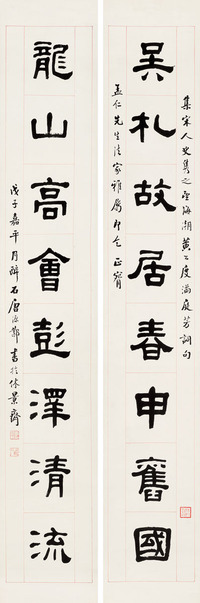 集宋人史隽之望海潮黄公度满庭芳词句
吴札故居春申旧國
孟仁先生法家雅属即乞正甯
龍山高會彭澤清流
戊子嘉平月醉石唐源鄴書於休景齋